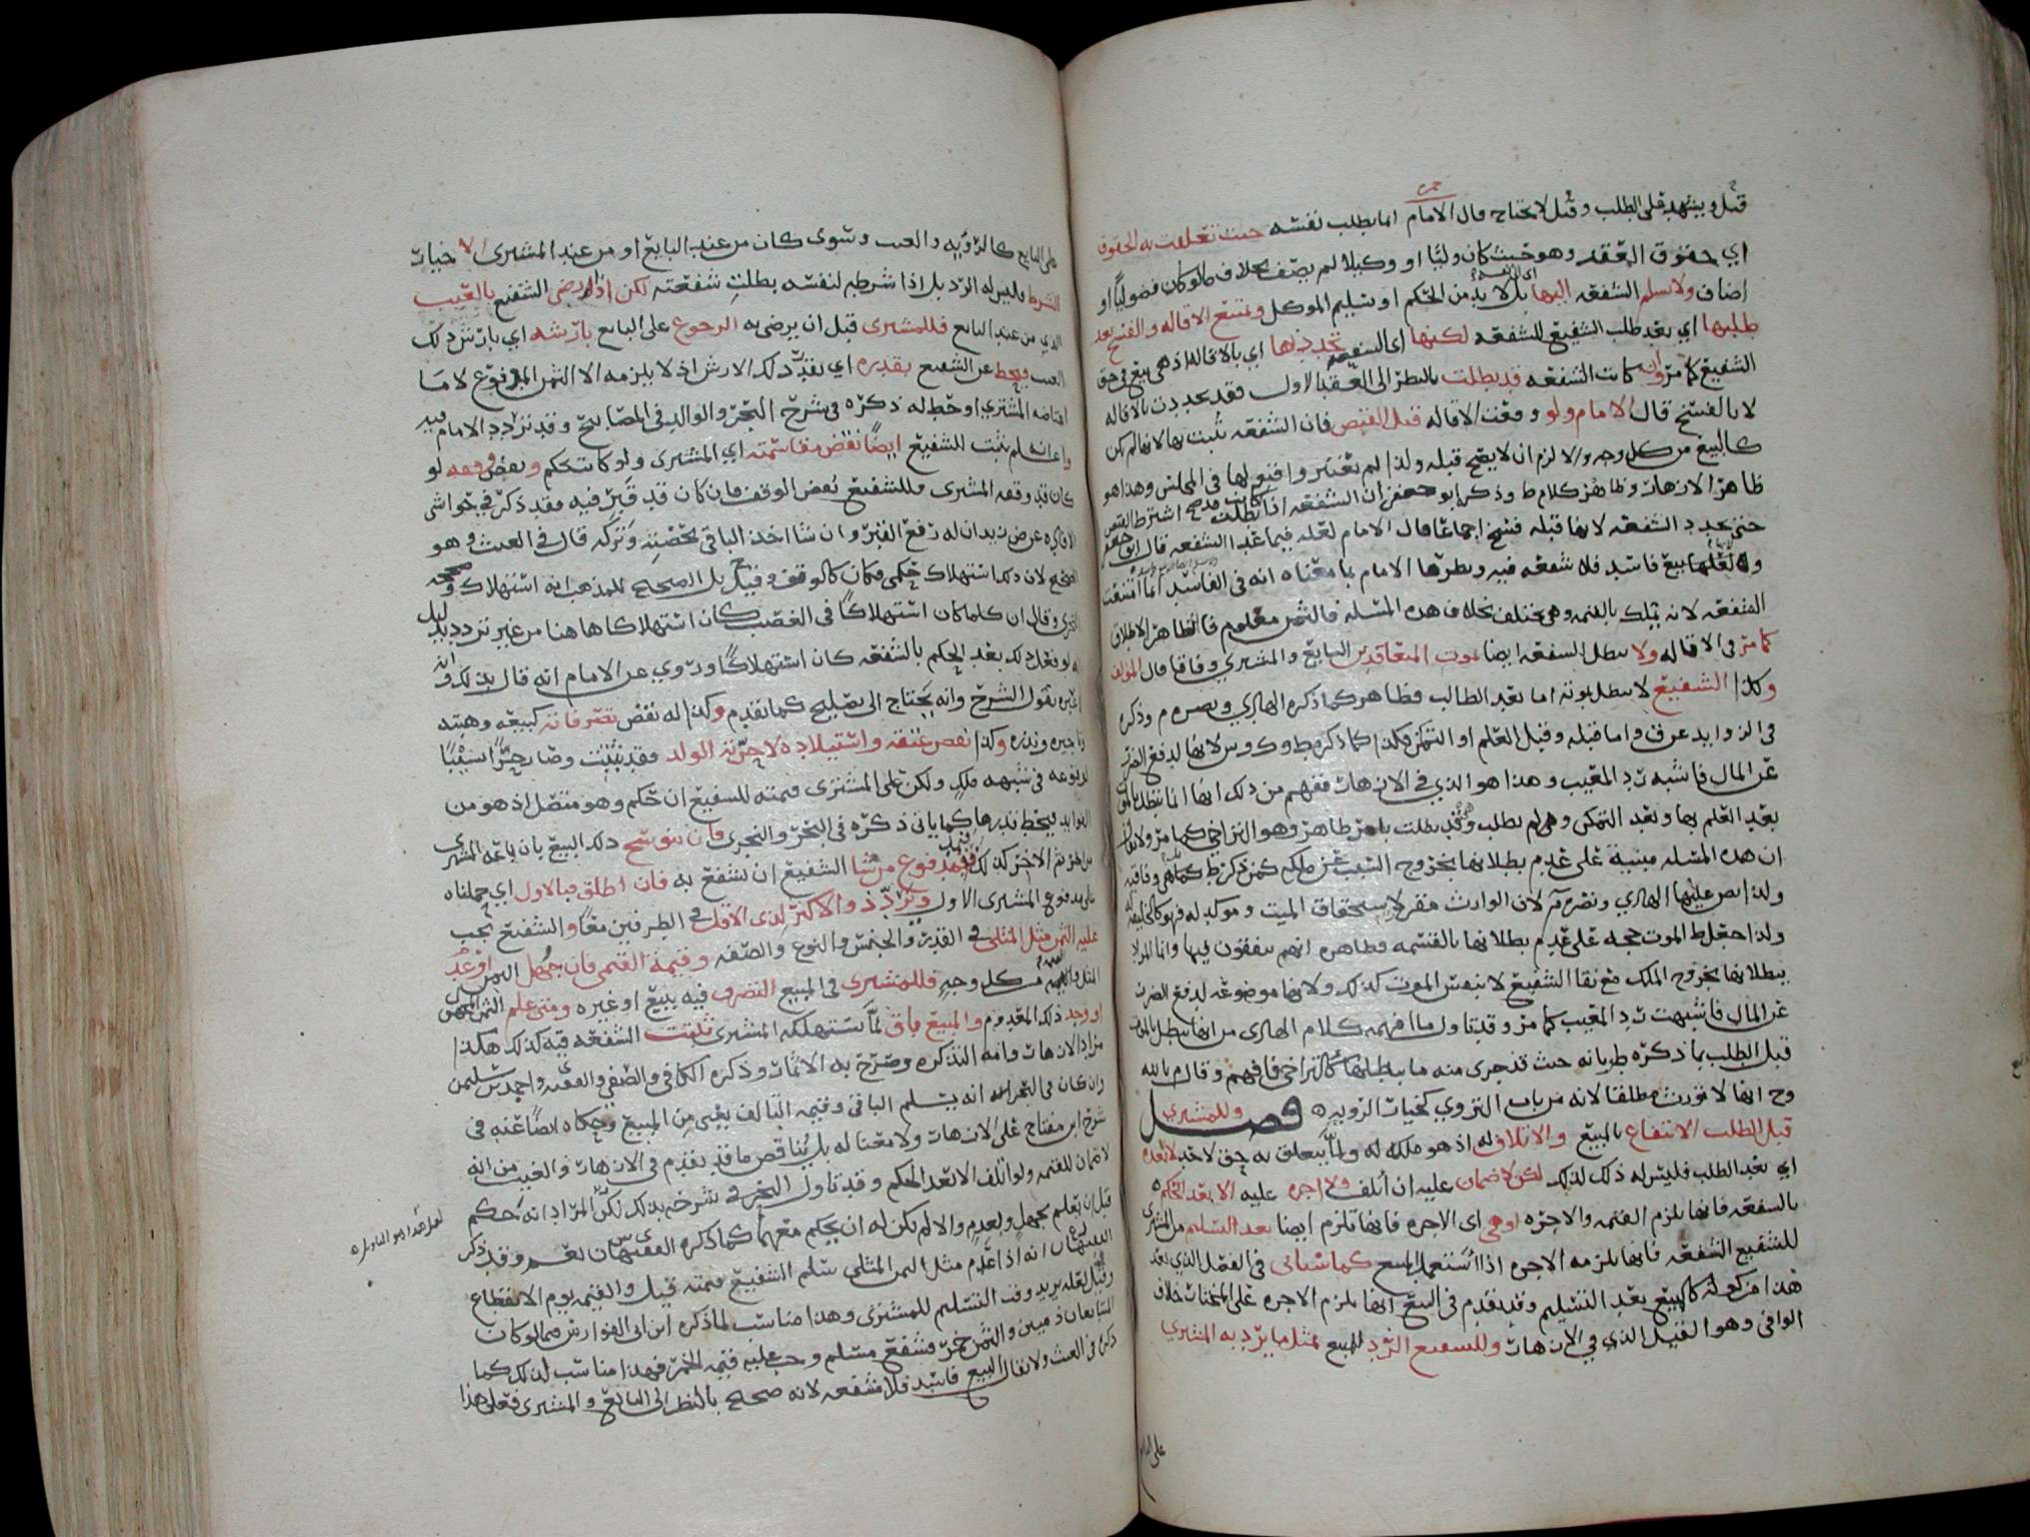 قيل ويشهد على الطلب وقيل لا يحتاج قال الامام انما يطلب نفسه حيث تعلقت به الحقوق
اي حقوق العقد وهو حيث كان وليًا او وكيلا لم يضف بخلاف ما لو كان فضوليًا او
اضاف ولا تسلم الشفعه اليها بل لا بد من الحكم او تسليم الموكل وتمتنع الاقاله والفسخ بعد
طلبها اي بعد طلب الشفيع للشفعه لكنها اي الشفعه تجدد بها اي بالاقاله اذ هي بيع في حق
الشفيع كما مر وان كانت الشفعه قد بطلت بالنظر الى العقد الاول فقد تجددت بالاقاله
لا بالفسخ قال الامام ولو وقعت الاقاله قبل القبض فان الشفعه تثبت بها لانها لم تكن
كالبيع من كل وجه والا لزم ان لا يصح قبله ولذا لم تعتبر في المجلس وهذا هو
ظاهر الازهار وظاهر كلام ط وذكر ابو جعفر ان الشفعه اذا كانت قد بطلت اشترط القبض
حتى تجدد الشفعه لانها قبله فسخ اجماعًا قال الامام لعله فيما عدا الشفعه قال ابو جعفر
ولعلها بيع فاسد فلا شفعه فيه ونظرها الامام بما معناه انه في الفاسد انما امتنعت
الشفعه لانه يملك بالقيمه وهي تختلف بخلاف هذه المسئله فالثمن معلوم فالظاهر الاطلاق
كما مر في الاقاله ولا تبطل الشفعه ايضا بموت المتعاقدين البايع والمشتري وفاقا قال المؤلف
وكذا الشفيع لا تبطل بموته اما بعد الطالب فظاهر كما ذكره الهادي و م وذكره
في الزوايد عن ق واما قبله وقبل العلم او التمكن فكذا كما ذكره ط و لانها لدفع الضرر
عن المال فاشبه رد المعيب وهذا هو الذي في الازهار ففهم من ذلك انها انما تبطل بالموت
بعد العلم بها وبعد التمكن ولم يطلب وقد بطلت بامر ظاهر وهو التراخي كما مر ولا
ان هذه المسئله مبنية على عدم بطلانها بخروج السبب عن ملكه كمن ذكر ط كما هي وفاقيه
ولذا نص عليها الهادي ونصره م لان الوارث مقرر لاستحقاق الميت وموكد له فهو كالخليفه
ولذا جعل ط الموت حجه على عدم بطلانها بالقسمه وظاهره انهم يتفقون فيها وانما المراد
ببطلانها بخروج الملك مع بقا الشفيع لا بنفس الموت كذلك ولانها موضوعه لدفع الضرر
عن المال فاشبهت رد المعيب كما مر وقد تاول ما افهمه كلام الهادي من انها تبطل بالموت
قبل الطلب بما ذكره ط بانه حيث قد جرى منه ما يبطلها كالتراخي فافهم وقال م بالله
وح انها لا تورث مطلقا لانه من باب التروي كخيار الرويه فصل وللمشتري
قبل الطلب الانتفاع بالمبيع والاتلاف له اذ هو ملكه له ولما يتعلق به حق لاحد لا بعده
اي بعد الطلب فليس له ذلك لذلك لكن لا ضمان عليه ان اتلف ولا اجره عليه الا بعد الحكم
بالشفعه فانها تلزم القيمه والاجره او هي اي الاجره فانها تلزم ايضا بعد التسليم من المشتري
للشفيع الشفعه فانها تلزمه الاجره اذا استعمل المبيع كما سياتي في الفصل الذي بعد
هذا من كونه كالمبيع بعد التسليم وقد تقدم في البيع انها تلزم الاجره على المختار خلاف
الوافي وهو القيل الذي في الازهار وللشفيع الرد للمبيع بمثل ما يرد به المشتري
على البايع
على البايع كالرؤيه والعيب وسوى كان من عند البايع او من عند المشتري الا خيار
الشرط فليس له الرد بل اذا شرطه لنفسه بطلت شفعته لكن اذا رضي الشفيع بالعيب
الذي من عند البايع فللمشتري قبل ان يرضى به الرجوع على البايع بارشه اي بارش ذلك
العيب ويحط عن الشفيع بقدره اي بقدر ذلك الارش اذ لا يلزمه الا الثمن المدفوع لا ما
اعتاضه المشتري او حط له ذكره في شرح البحر والوالد في المصابيح وقد تردد الامام فيه
واعلم انه يثبت للشفيع ايضًا نقض مقاسمته اي المشتري ولو كانت بحكم ونقض وقفه لو
كان قد وقفه المشتري فللشفيع نقض الوقف فان كان قد قبر فيه فقد ذكر في حواشي
الافاده عن ض زيد ان له رفع القبر وان شا اخذ الباقي بحصته وتركه قال في الغيث وهو
الصحيح لان ذلك استهلاك حكمي فكان كالوقف وقيل بل الصحيح للمذهب انه استهلاك
النجري وقال ان كلما كان استهلاكًا في الغصب كان استهلاكا هاهنا من غير تردد بدليل
انه لو فعل ذلك بعد الحكم بالشفعه كان استهلاكًا وروي عن الامام انه قال بذلك وانه
غيره بقول الشرح وانه يحتاج الى تصليح كما تقدم وكذا له نقض تصرفاته كبيعه وهبته
وتاجيره ونذره وكذا نقض عتقه واستيلاده لا حرية الولد فقد ثبتت وصار حرًا نسيبًا
لوقوعه في شبهه ملك ولكن على المشتري قيمته للشفيع ان حكم وهو متصل اذ هو من
الفوايد فيحط بقدرها كما ياتي ذكره في البحر والنجري فان تنوسخ ذلك المبيع بان باعه المشتري
من اخر ثم الاخر كذلك فبمدفوع من شا الشفيع ان يشفع به فان اطلق فبالاول اي حملناه
على مدفوع المشتري الاول ويراد ذو الاكثر لذي الاقل في الطرفين معًا والشفيع يجب
عليه الثمن مثل المثلي في القدر والجنس والنوع والصفه وقيمة القيمي فان جهل الثمن او عدم
المثل من كل وجه فللمشتري في المبيع التصرف فيه ببيع او غيره ومتى علم الثمن المجهول
او وجد ذلك المعدوم والمبيع باق لما يستهلكه المشتري ثبتت الشفعه فيه كذلك هكذا
مراد الازهار وانه التذكره وصرح به الاثمار وذكره الكافي والصفي والفقيه ى واحمد بن سليمن
وان كان في البحر انه يسلم الباقي وقيمة التالف يعني من المبيع وحكاه ايضًا عنه في
شرح ابن مفتاح على الازهار ولا معنا له بل يناقض ما قد تقدم في الازهار والغيث من انه
لا ضمان للقيمه ولو اتلف الا بعد الحكم وقد تاول البحر في شرحه بذلك لكن المراد انه حكم
قبل ان يعلم بجهل ولعدم والا لم يكن له ان يحكم معهما كما ذكره الفقيهان نعم وقد ذكر
الفقيهان انه اذا عدم مثل الثمن المثلي سلم الشفيع قيمته قيل والقيمه يوم الانقطاع
وقيل لعله يريد وقت التسليم للمشتري وهذا مناسب لما ذكره ابن ابي الفوارس فيما لو كان
المتبايعان ذميين والثمن خمر فشفع مسلم وجب عليه قيمة الخمر فهذا مناسب لذلك كما
ذكر في الغيث ولا يقال البيع فاسد فلا شفعه لانه صحيح بالنظر الى البايع والمشتري فعلى هذا
لعل هذا هو التاويل